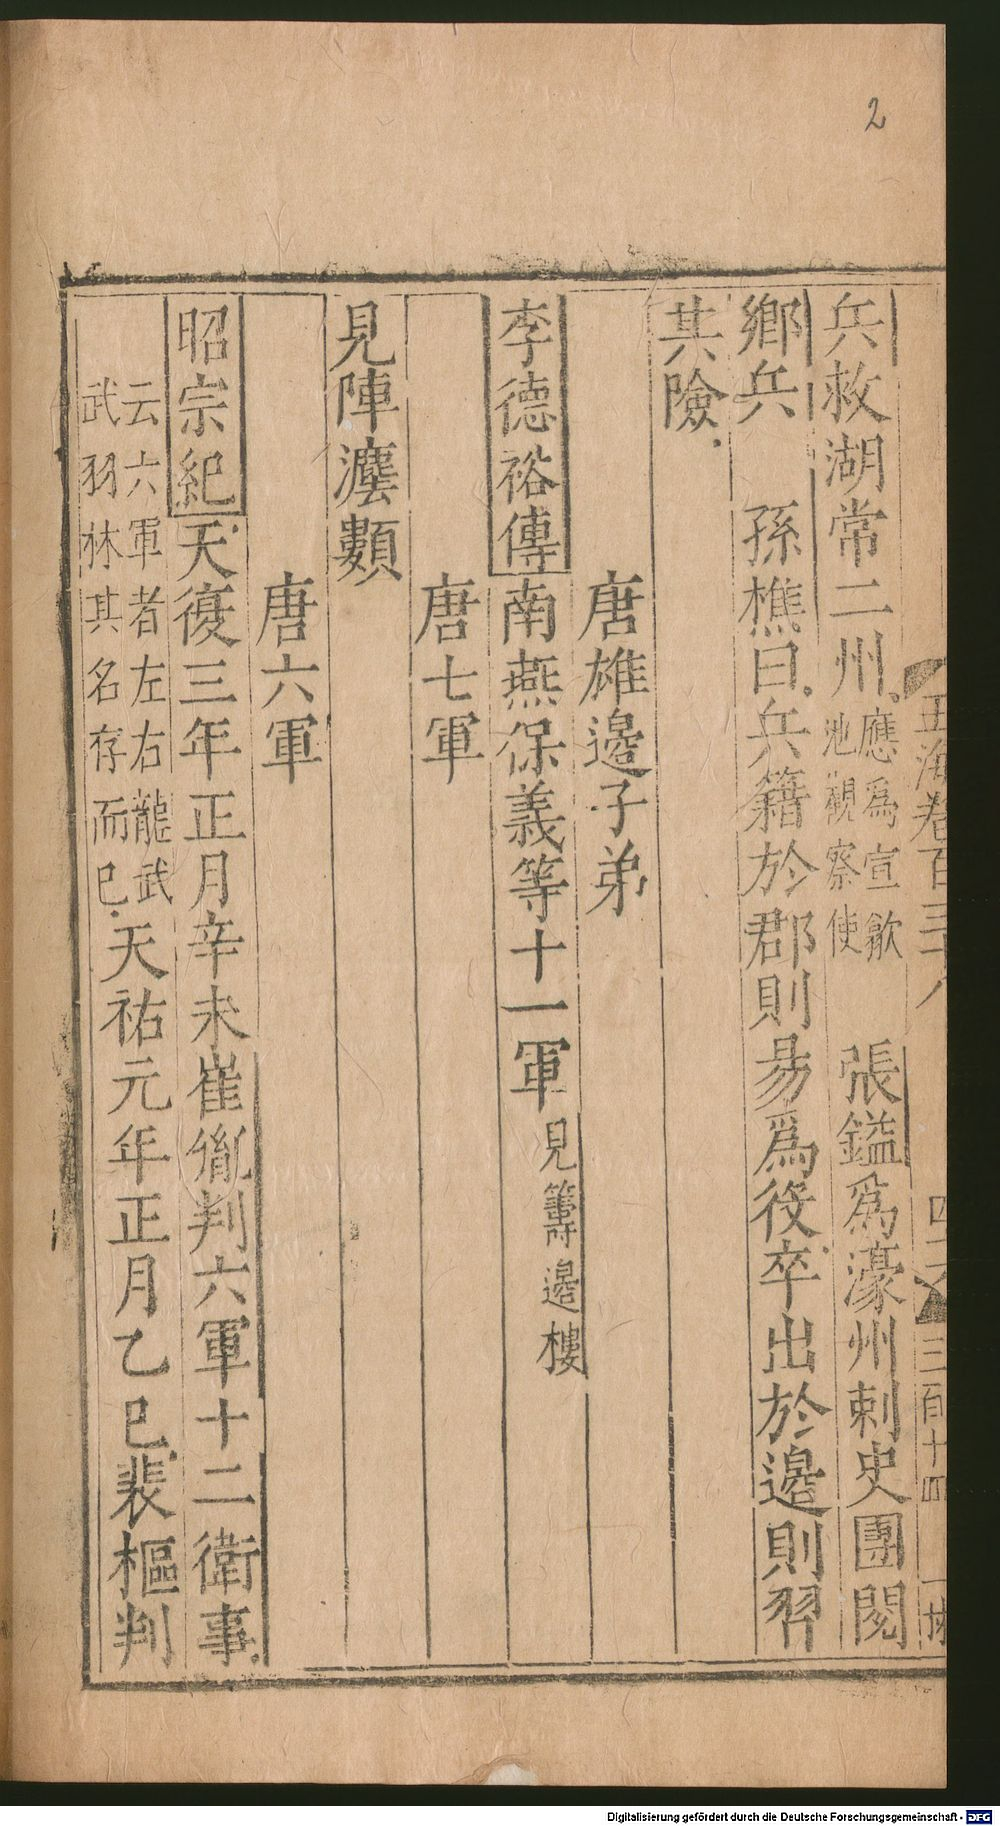 2
玉海卷百三十八
三百十四
兵救湖常二州應爲宣歙池觀察使 張鎰爲濠州刺史團閱
鄉兵 孫樵曰兵籍於郡則易爲役卒出於邊則習
其險
唐雄邊子弟
李德裕傳南燕保義等十一軍見籌邊樓
唐七軍
見陣灋類
唐六軍
昭宗紀天復三年正月辛未崔胤判六軍十二衛事
云六軍者左右龍武武羽林其名存而已天祐元年正月乙巳裴樞判
Digitalisierung gefördert durch die Deutsche Forschungsgemeinschaft - DFG